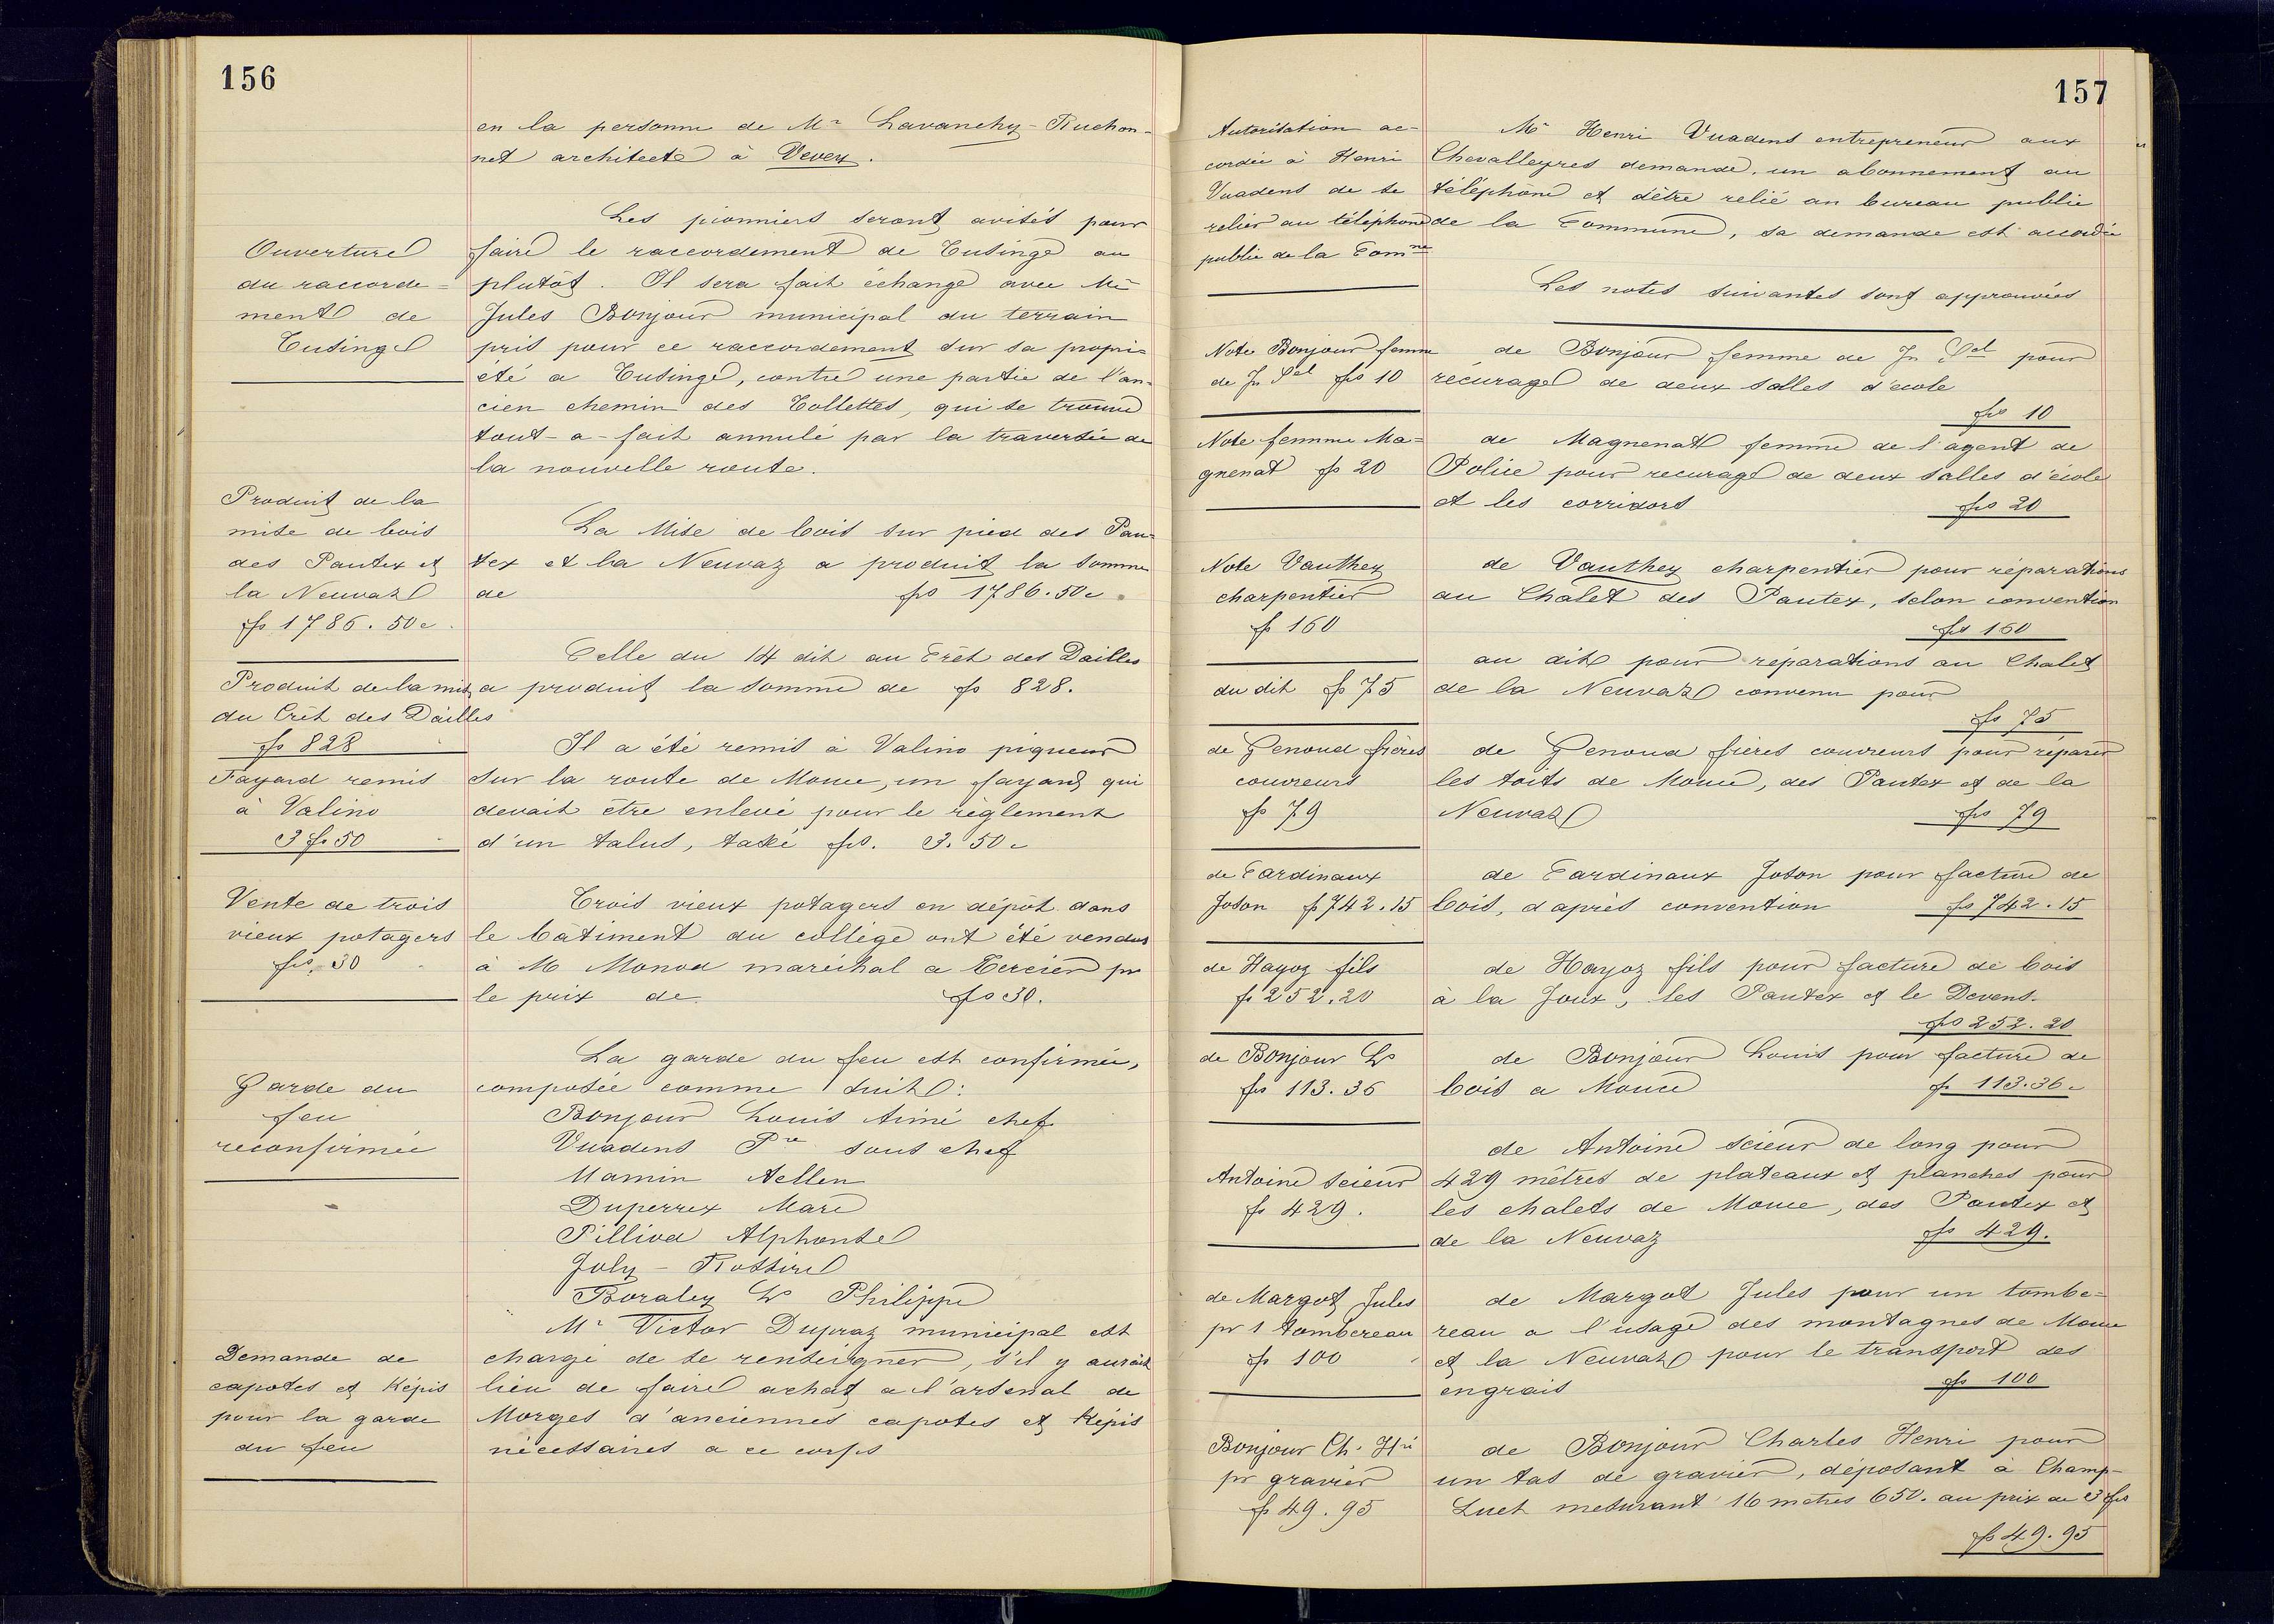 156
en la personne de Mr Lavanchy-Ruchon-
net architecte à Vevey.
Ouverture
du raccorde-
ment de
Tusinge
Les pionniers seront avisés pour
faire le raccordement de Tusinge au
plutôt. Il sera fait échange avec Mr
Jules Bonjour municipal du terrain
pris pour ce raccordement sur sa propri-
été a Tusinge, contre une partie de l'an-
cien chemin des Tollettes, qui se trouve
tout-a-fait annulé par la traversée de
la nouvelle route.
Produit de la
mise de bois
des Pautex et
la Neuvaz
fs 1786.50c.
La Mise de bois sur pied des Pau-
tex et la Neuvaz a produit la somme
de fs 1786.50c.
Produit de la mise
du Crêt des Dailles
fs 828
Celle du 14 dit au Crêt des Dailles
a produit la somme de fs 828.
Fayard remis
à Valino
3 fs 50
Il a été remis à Valino piqueur
sur la route de Mouce, un fayard qui
devait être enlevé pour le règlement
d'un talus, taxé frs. 3.50c
Vente de trois
vieux potagers
frs. 30
Trois vieux potagers en dépôt dans
le batiment du collège ont été vendus
à M Monod maréchal a Tercier pr
le prix de fs 30.
Garde du
feu
reconfirmée
La garde du feu est confirmée,
composée comme suit:
Bonjour Louis Aimé chef
Vuadens Pre sous chef
Mamin Aellen
Duperrex Marc
Pilliod Alphonse
Joly-Rossire
Boraley Ls Philippe
Demande de
capotes et Képis
pour la garde
du feu
Mr Victor Dupraz municipal est
chargé de se renseigner, s'il y aurait
lieu de faire achat a l'arsenal de
Morges d'anciennes capotes et Képis
nécessaires a ce corps
157
Autorisation ac-
cordée à Henri
Vuadens de se
relier au téléphone
public de la Comne
Mr Henri Vuadens entrepreneur aux
Chevalleyres demande, un abonnement au
téléphone et d'être relié au bureau public
de la Commune, sa demande est accordée
Les notes suivantes sont approuvées
Note Bonjour femme
de Jn Sel frs 10
de Bonjour femme de Jn Sel pour
récurage de deux salles d'école
frs 10
Note femme Ma-
gnenat fs 20
de Magnenat femme de l'agent de
Police pour recurage de deux salles d'école
et les corridors frs 20
Note Vauthey
charpentier
f 160
de Vauthey charpentier pour réparations
au Chalet des Pautex, selon convention
frs 160
du dit fs 75
au dit pour réparations au Chalet
de la Neuvaz convenu pour
fs 75
de Genoud frères
couvreurs
fs 79
de Genoud frères couvreurs pour réparer
les toits de Mouce, des Pautex et de la
Neuvaz frs 79
de Cardinaux
Joson fs 742.15
de Cardinaux Joson pour facture de
bois, d'après convention fs 742.15
de Hayoz fils
fs 252.20
de Hayoz fils pour facture de bois
à la Joux, les Pautex et le Devens.
frs 252.20
de Bonjour Ls
frs 113.36
de Bonjour Louis pour facture de
bois a Mouce fs 113.36c
Antoine scieur
fs 429.
de Antoine scieur de long pour
429 mêtres de plateaux et planches pour
les chalets de Mouce, des Pautex et
de la Neuvaz fs 429.
de Margot Jules
pr 1 tombereau
fs 100
de Margot Jules pour un tombe-
reau a l'usage des montagnes de Mouce
et la Neuvaz pour le transport des
engrais fs 100
Bonjour Ch. Hri
pr gravier
fs 49.95
de Bonjour Charles Henri pour
un tas de gravier, déposant à Champ-
Luet mesurant 16 metres 650. au prix de 3 frs
fs 49.95